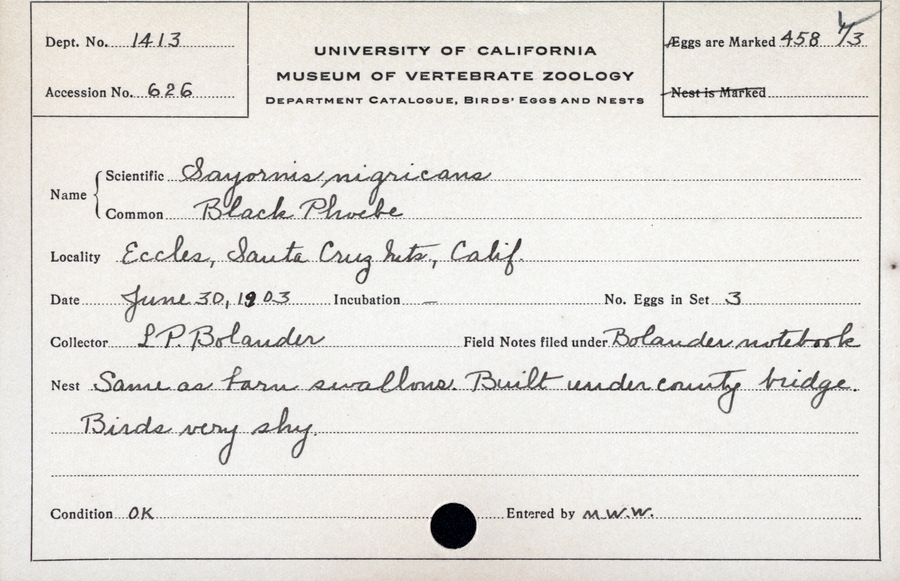 Dept. No. 1413
Accession No. 626
UNIVERSITY OF CALIFORNIA
MUSEUM OF VERTEBRATE ZOOLOGY
DEPARTMENT CATALOGUE, BIRDS' EGGS AND NESTS
Eggs are Marked 458 1/3
Nest is Marked
Name
Scientific Sayornis nigricans
Common Black Phoebe
Locality Eccles, Santa Cruz Mts., Calif.
Date June 30, 1903 Incubation — No. Eggs in Set 3
Collector L.P. Bolander Field Notes filed under Bolander notebook
Nest Same as barn swallows. Built under county bridge.
Birds very shy.
Condition OK Entered by M.W.W.